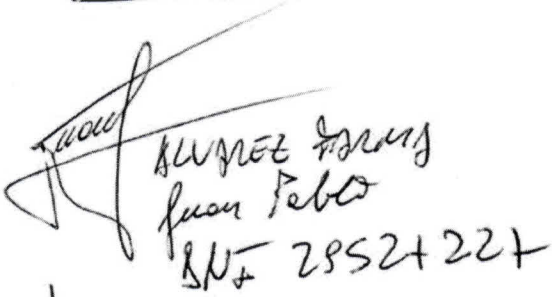 Juan
ALVAREZ
Juan Pablo
DNI 29527227